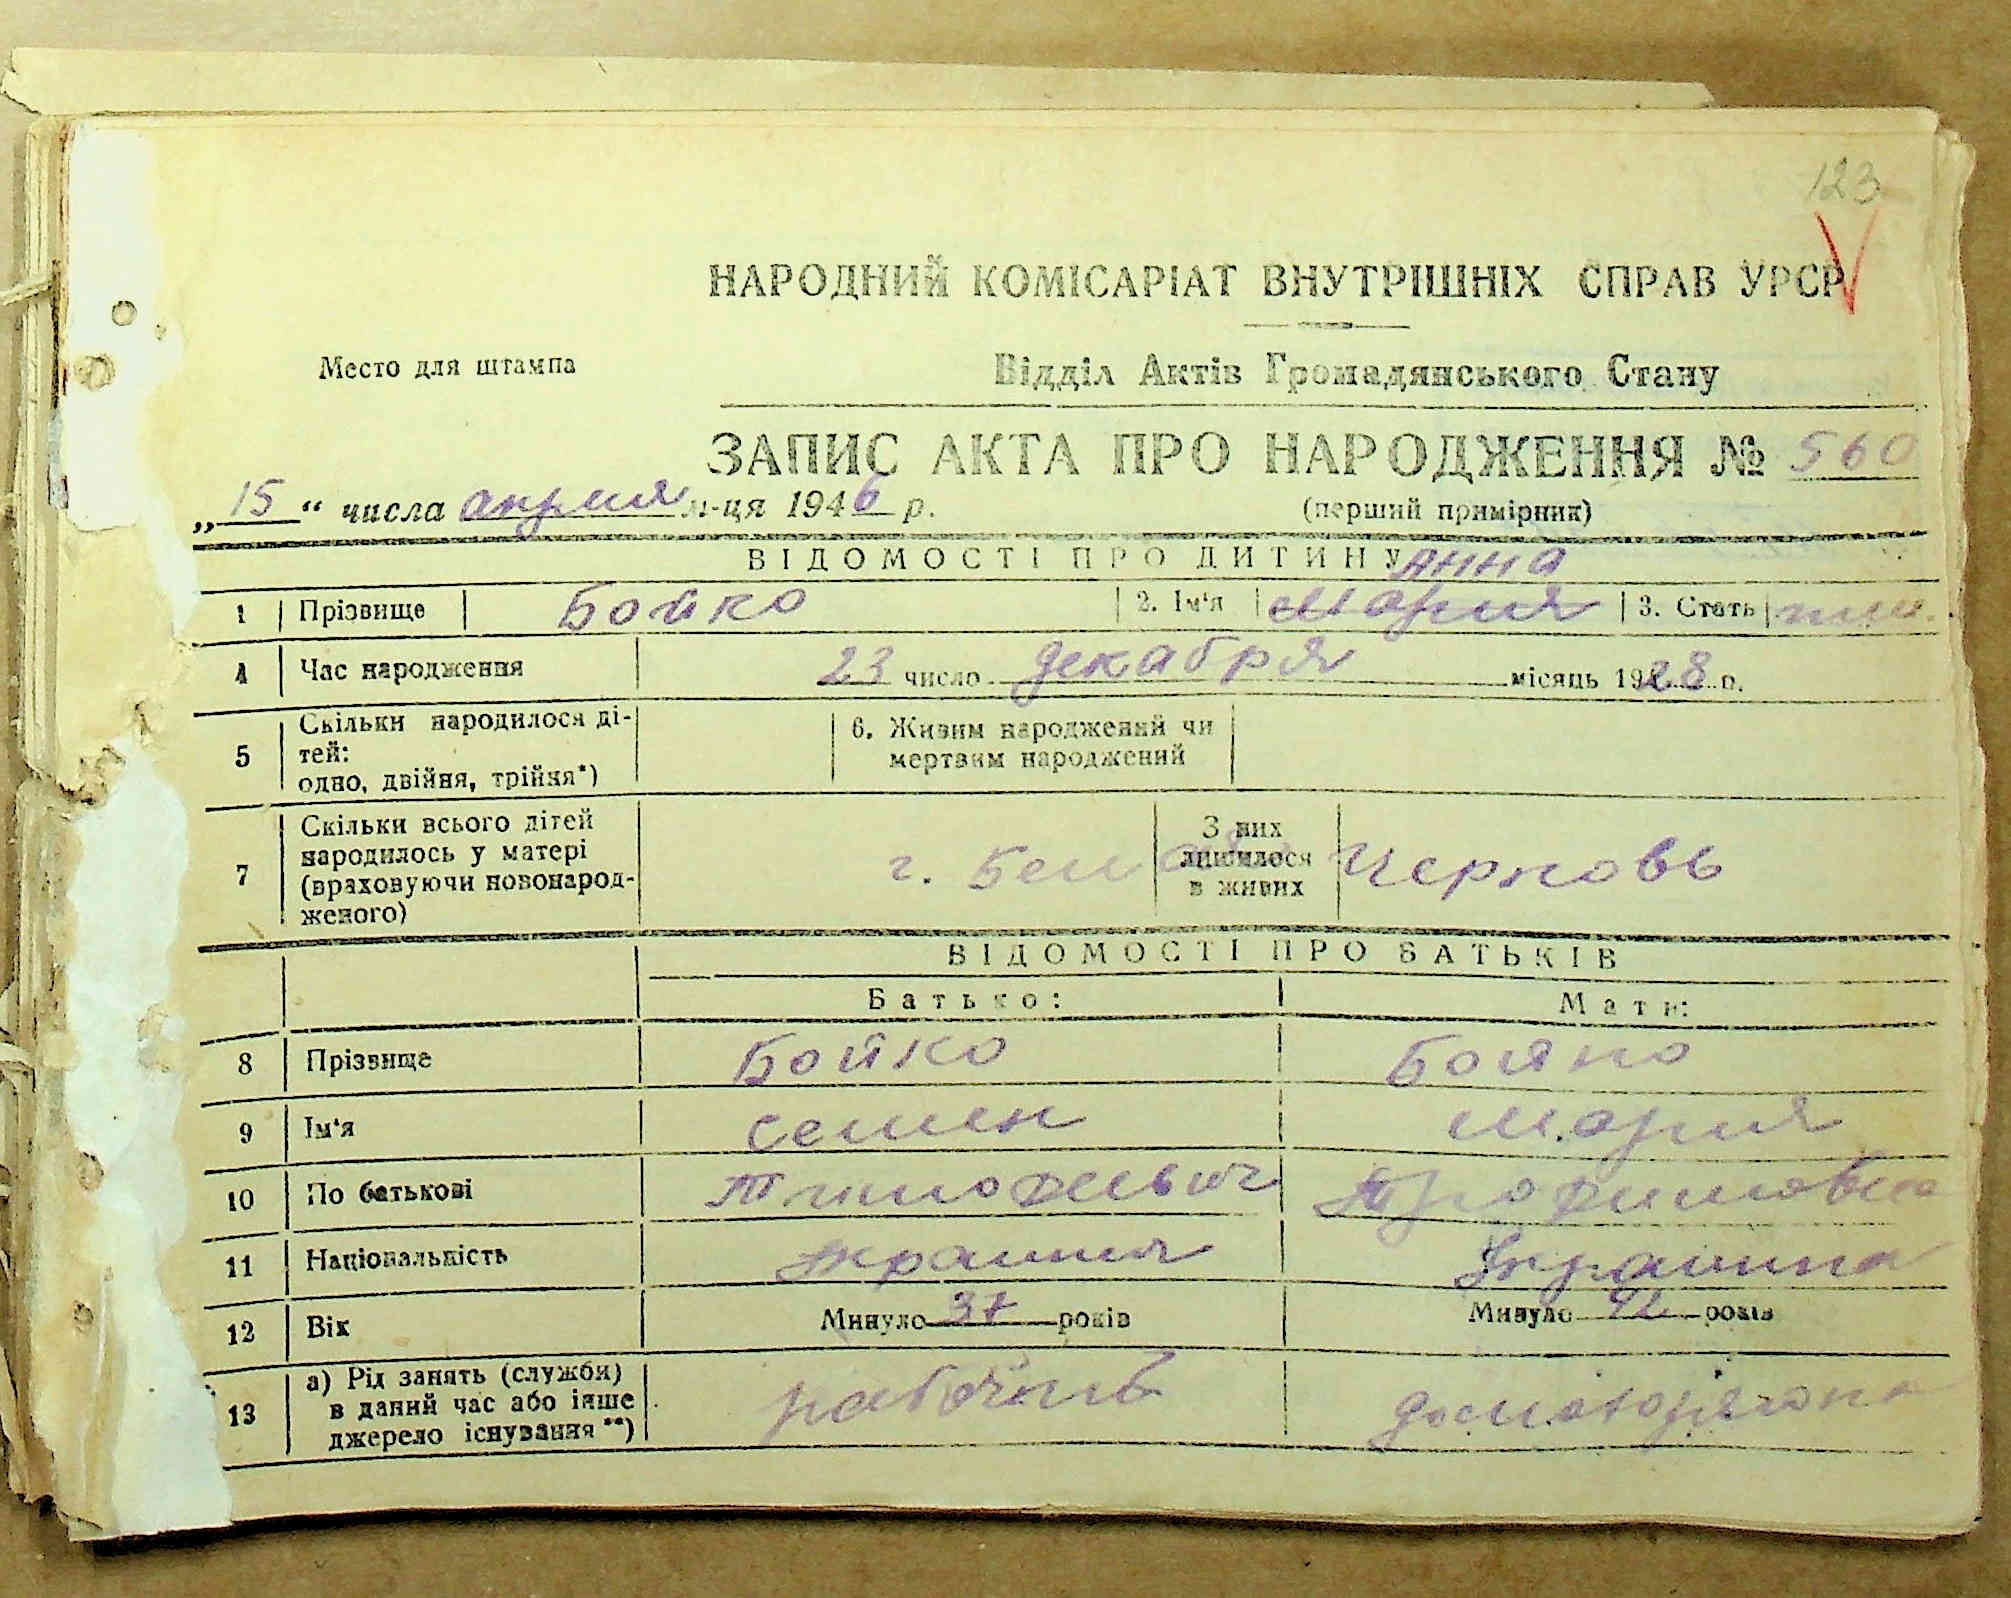 123
НАРОДНИЙ КОМІСАРІАТ ВНУТРІШНІХ СПРАВ УРСР
Место для штампа
Відділ Актів Громадянського Стану
ЗАПИС АКТА ПРО НАРОДЖЕННЯ № 560
„15“ числа апреля м-ця 1946 р.
(перший примірник)
ВІДОМОСТІ ПРО ДИТИНУ
Анна
1 Прізвище Бойко 2. Ім'я Мария 3. Стать
4 Час народження 23 число декабря місяць 1928 р.
5 Скільки народилося ді-
тей:
одно, двійня, трійня*)
6. Живим народжений чи
мертвим народжений
7 Скільки всього дітей
народилось у матері
(враховуючи новонарод-
женого)
г.
З них
лишилося
в живих
ВІДОМОСТІ ПРО БАТЬКІВ
Батько: Мати:
8 Прізвище Бойко Бойко
9 Ім'я Семен Мария
10 По батькові Тимофеевич Трофимовна
11 Національність Украинец Украинка
12 Вік Минуло 37 років Минуло 42 років
13 а) Рід занять (служби)
в даний час або інше
джерело існування **)
рабочий домохозяйка